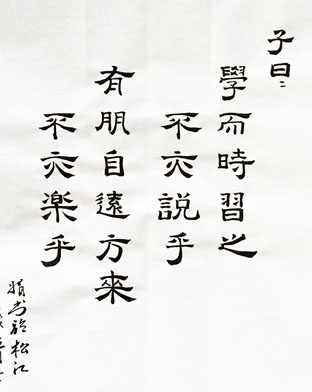 子曰：
學而時習之
不亦説乎
有朋自遠方來
不亦楽乎
娟书於松江